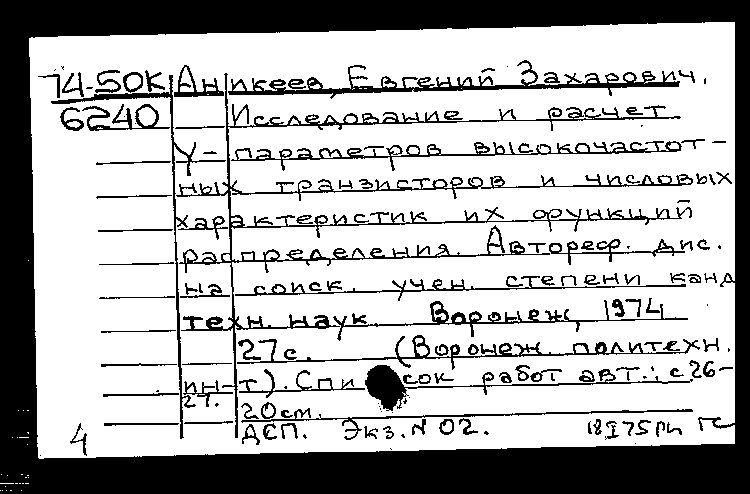 74-50К Аникеев, Евгений Захарович.
6240 Исследование и расчет
Y-параметров высокочастот-
ных транзисторов и числовых
характеристик их функций
распределения. Автореф. дис.
на соиск. учен. степени канд
техн. наук Воронеж, 1974
27с. (Воронеж. политехн.
ин-т). Список работ авт.: с 26-
27.
20см.
ДСП. Экз. N 02.
4